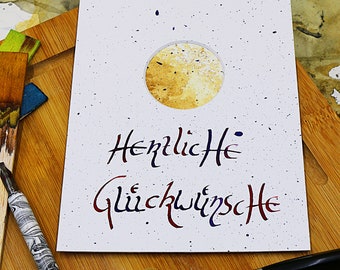 Herzliche
Glückwünsche